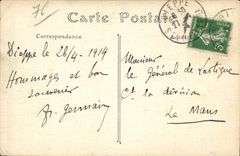 76
Carte Postale
Correspondance
DIEPPE
Dieppe le 28/4-1914
Hommages et bon
souvenir
Monsieur
le Général de Lartigue
la division
Le Mans
5